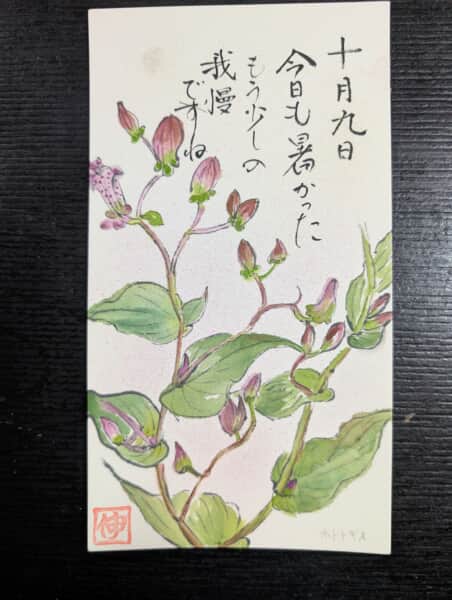 十月九日
今日も暑かった
もう少しの
我慢
ですね
ホトトギス
伸